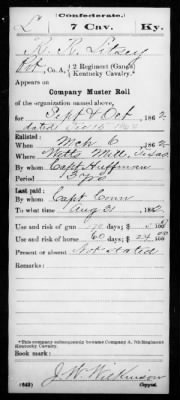 (Confederate.)
L 7 Cav. Ky.
R. R. Litsey
Pvt, Co. A, { 2 Regiment (Gano's) Kentucky Cavalry.*
Appears on
Company Muster Roll
of the organization named above,
for Sept & Oct, 1862.
dated
Enlisted:
When Mch 6, 186
Where Mill, Texas
By whom Capt Huffman
Period 3 yrs
Last paid:
By whom Capt Conn
To what time Aug 31, 1862.
Use and risk of gun days; $ 100
Use and risk of horse 60 days; $ 24 00/100
Present or absent Not stated
Remarks:
*This company subsequently became Company A, 7th Regiment Kentucky Cavalry.
Book mark:
J. W. Wilkinson
(642) Copyist.